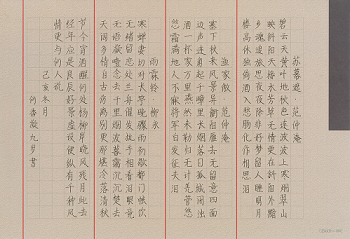 苏幕遮 范仲淹
碧云天黄叶地秋色连波波上寒烟翠山
映斜阳天接水芳草无情更在斜阳外黯
乡魂追旅思夜夜除非好梦留人睡明月
楼高休独倚酒入愁肠化作相思泪
渔家傲 范仲淹
塞下秋来风景异衡阳雁去无留意四面
边声连角起千嶂里长烟落日孤城闭浊
酒一杯家万里燕然未勒归无计羌管悠
悠霜满地人不寐将军白发征夫泪
雨霖铃 柳永
寒蝉凄切对长亭晚骤雨初歇都门帐饮
无绪留恋处兰舟催发执手相看泪眼竟
无语凝噎念去去千里烟波暮霭沉沉楚
天阔多情自古伤离别更那堪冷落清秋
节今宵酒醒何处杨柳岸晓风残月此去
经年应是良辰好景虚设便纵有千种风
情更与何人说
己亥冬月
九岁书